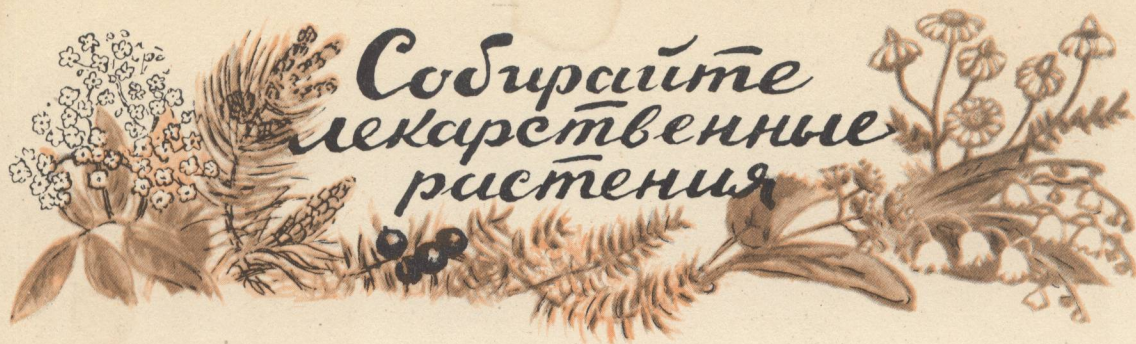 Собирайте
лекарственные
растения